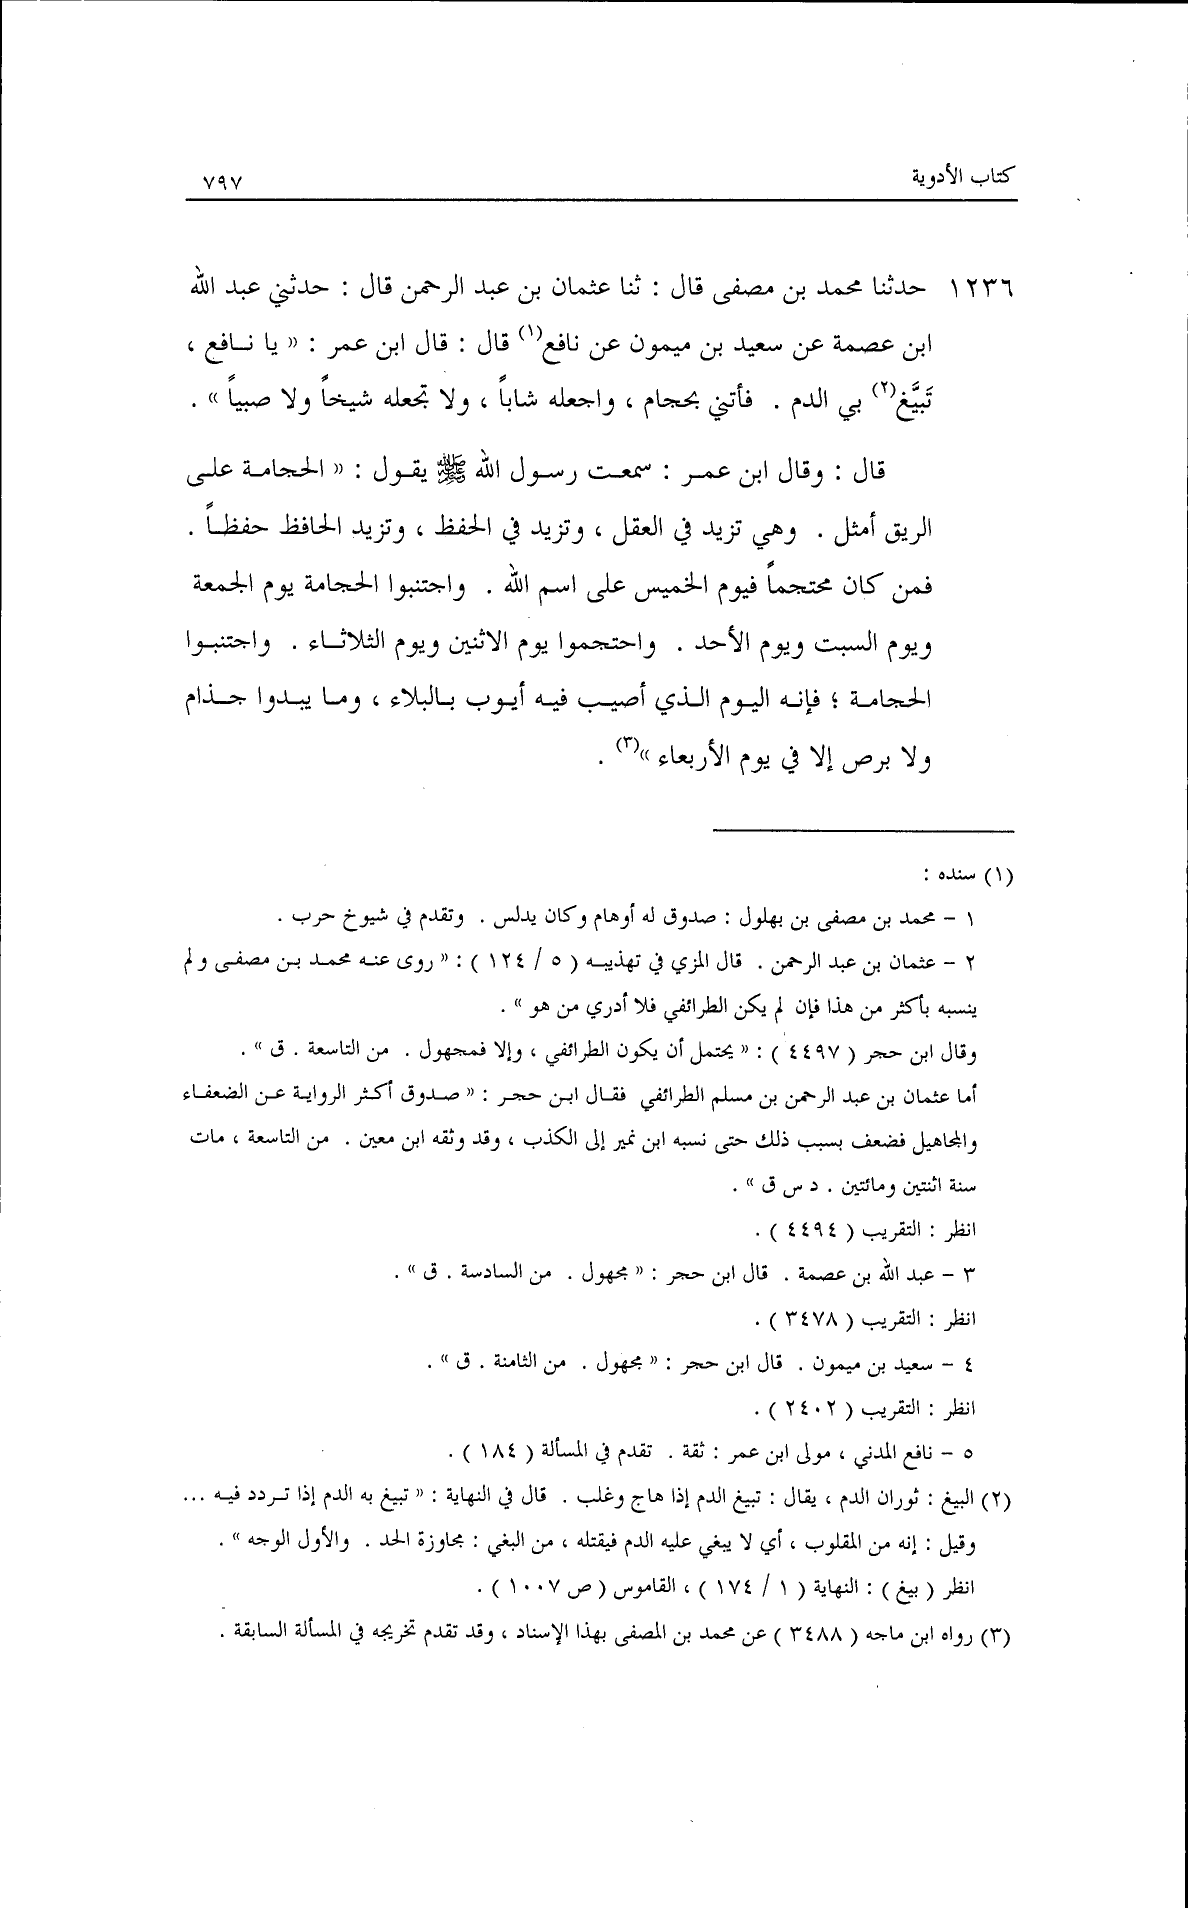 كتاب الأدوية ٧٩٧
١٢٣٦ حدثنا محمد بن مصفى قال : ثنا عثمان بن عبد الرحمن قال : حدثني عبد الله
ابن عصمة عن سعيد بن ميمون عن نافع(١) قال : قال ابن عمر : « يا نافع ،
تَبَيَّغ(٢) بي الدم . فأتني بحجام ، واجعله شاباً ، ولا تجعله شيخاً ولا صبياً » .
قال : وقال ابن عمر : سمعت رسول الله ﷺ يقول : « الحجامة على
الريق أمثل . وهي تزيد في العقل ، وتزيد في الحفظ ، وتزيد الحافظ حفظاً .
فمن كان محتجماً فيوم الخميس على اسم الله . واجتنبوا الحجامة يوم الجمعة
ويوم السبت ويوم الأحد . واحتجموا يوم الاثنين ويوم الثلاثاء . واجتنبوا
الحجامة ؛ فإنه اليوم الذي أصيب فيه أيوب بالبلاء ، وما يبدوا جذام
ولا برص إلا في يوم الأربعاء »(٣) .
(١) سنده :
١ - محمد بن مصفى بن بهلول : صدوق له أوهام وكان يدلس . وتقدم في شيوخ حرب .
٢ - عثمان بن عبد الرحمن . قال المزي في تهذيبه ( ٥ / ١٢٤ ) : « روى عنه محمد بن مصفى ولم
ينسبه بأكثر من هذا فإن لم يكن الطرائفي فلا أدري من هو » .
وقال ابن حجر ( ٤٤٩٧ ) : « يحتمل أن يكون الطرائفي ، وإلا فمجهول . من التاسعة . ق » .
أما عثمان بن عبد الرحمن بن مسلم الطرائفي فقال ابن حجر : « صدوق أكثر الرواية عن الضعفاء
والمجاهيل فضعف بسبب ذلك حتى نسبه ابن نمير إلى الكذب ، وقد وثقه ابن معين . من التاسعة ، مات
سنة اثنتين ومائتين . د س ق » .
انظر : التقريب ( ٤٤٩٤ ) .
٣ - عبد الله بن عصمة . قال ابن حجر : « مجهول . من السادسة . ق » .
انظر : التقريب ( ٣٤٧٨ ) .
٤ - سعيد بن ميمون . قال ابن حجر : « مجهول . من الثامنة . ق » .
انظر : التقريب ( ٢٤٠٢ ) .
٥ - نافع المدني ، مولى ابن عمر : ثقة . تقدم في المسألة ( ١٨٤ ) .
(٢) البيغ : ثوران الدم ، يقال : تبيغ الدم إذا هاج وغلب . قال في النهاية : « تبيغ به الدم إذا تردد فيه ...
وقيل : إنه من المقلوب ، أي لا يبغي عليه الدم فيقتله ، من البغي : مجاوزة الحد . والأول الوجه » .
انظر ( بيغ ) : النهاية ( ١ / ١٧٤ ) ، القاموس ( ص ١٠٠٧ ) .
(٣) رواه ابن ماجه ( ٣٤٨٨ ) عن محمد بن المصفى بهذا الإسناد ، وقد تقدم تخريجه في المسألة السابقة .